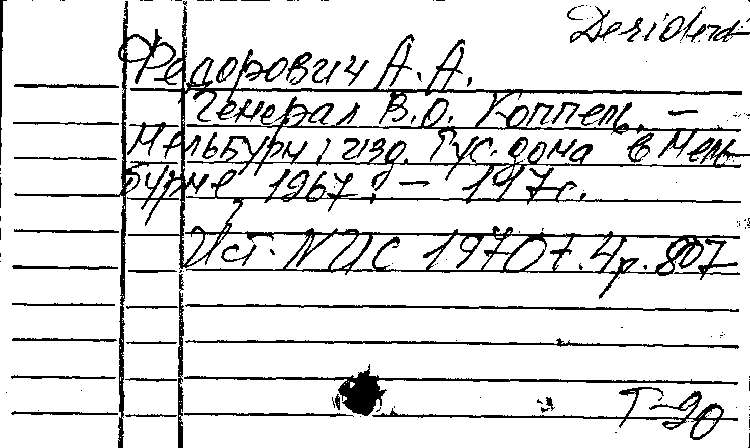 Desiderat
Федорович А. А.
Генерал В.О. Каппель. –
Мельбурн, изд. Рус. дома в Мель-
бурне, 1967. – 197с.
Ист. NUC 1970 т. 4 р. 807
Г-20